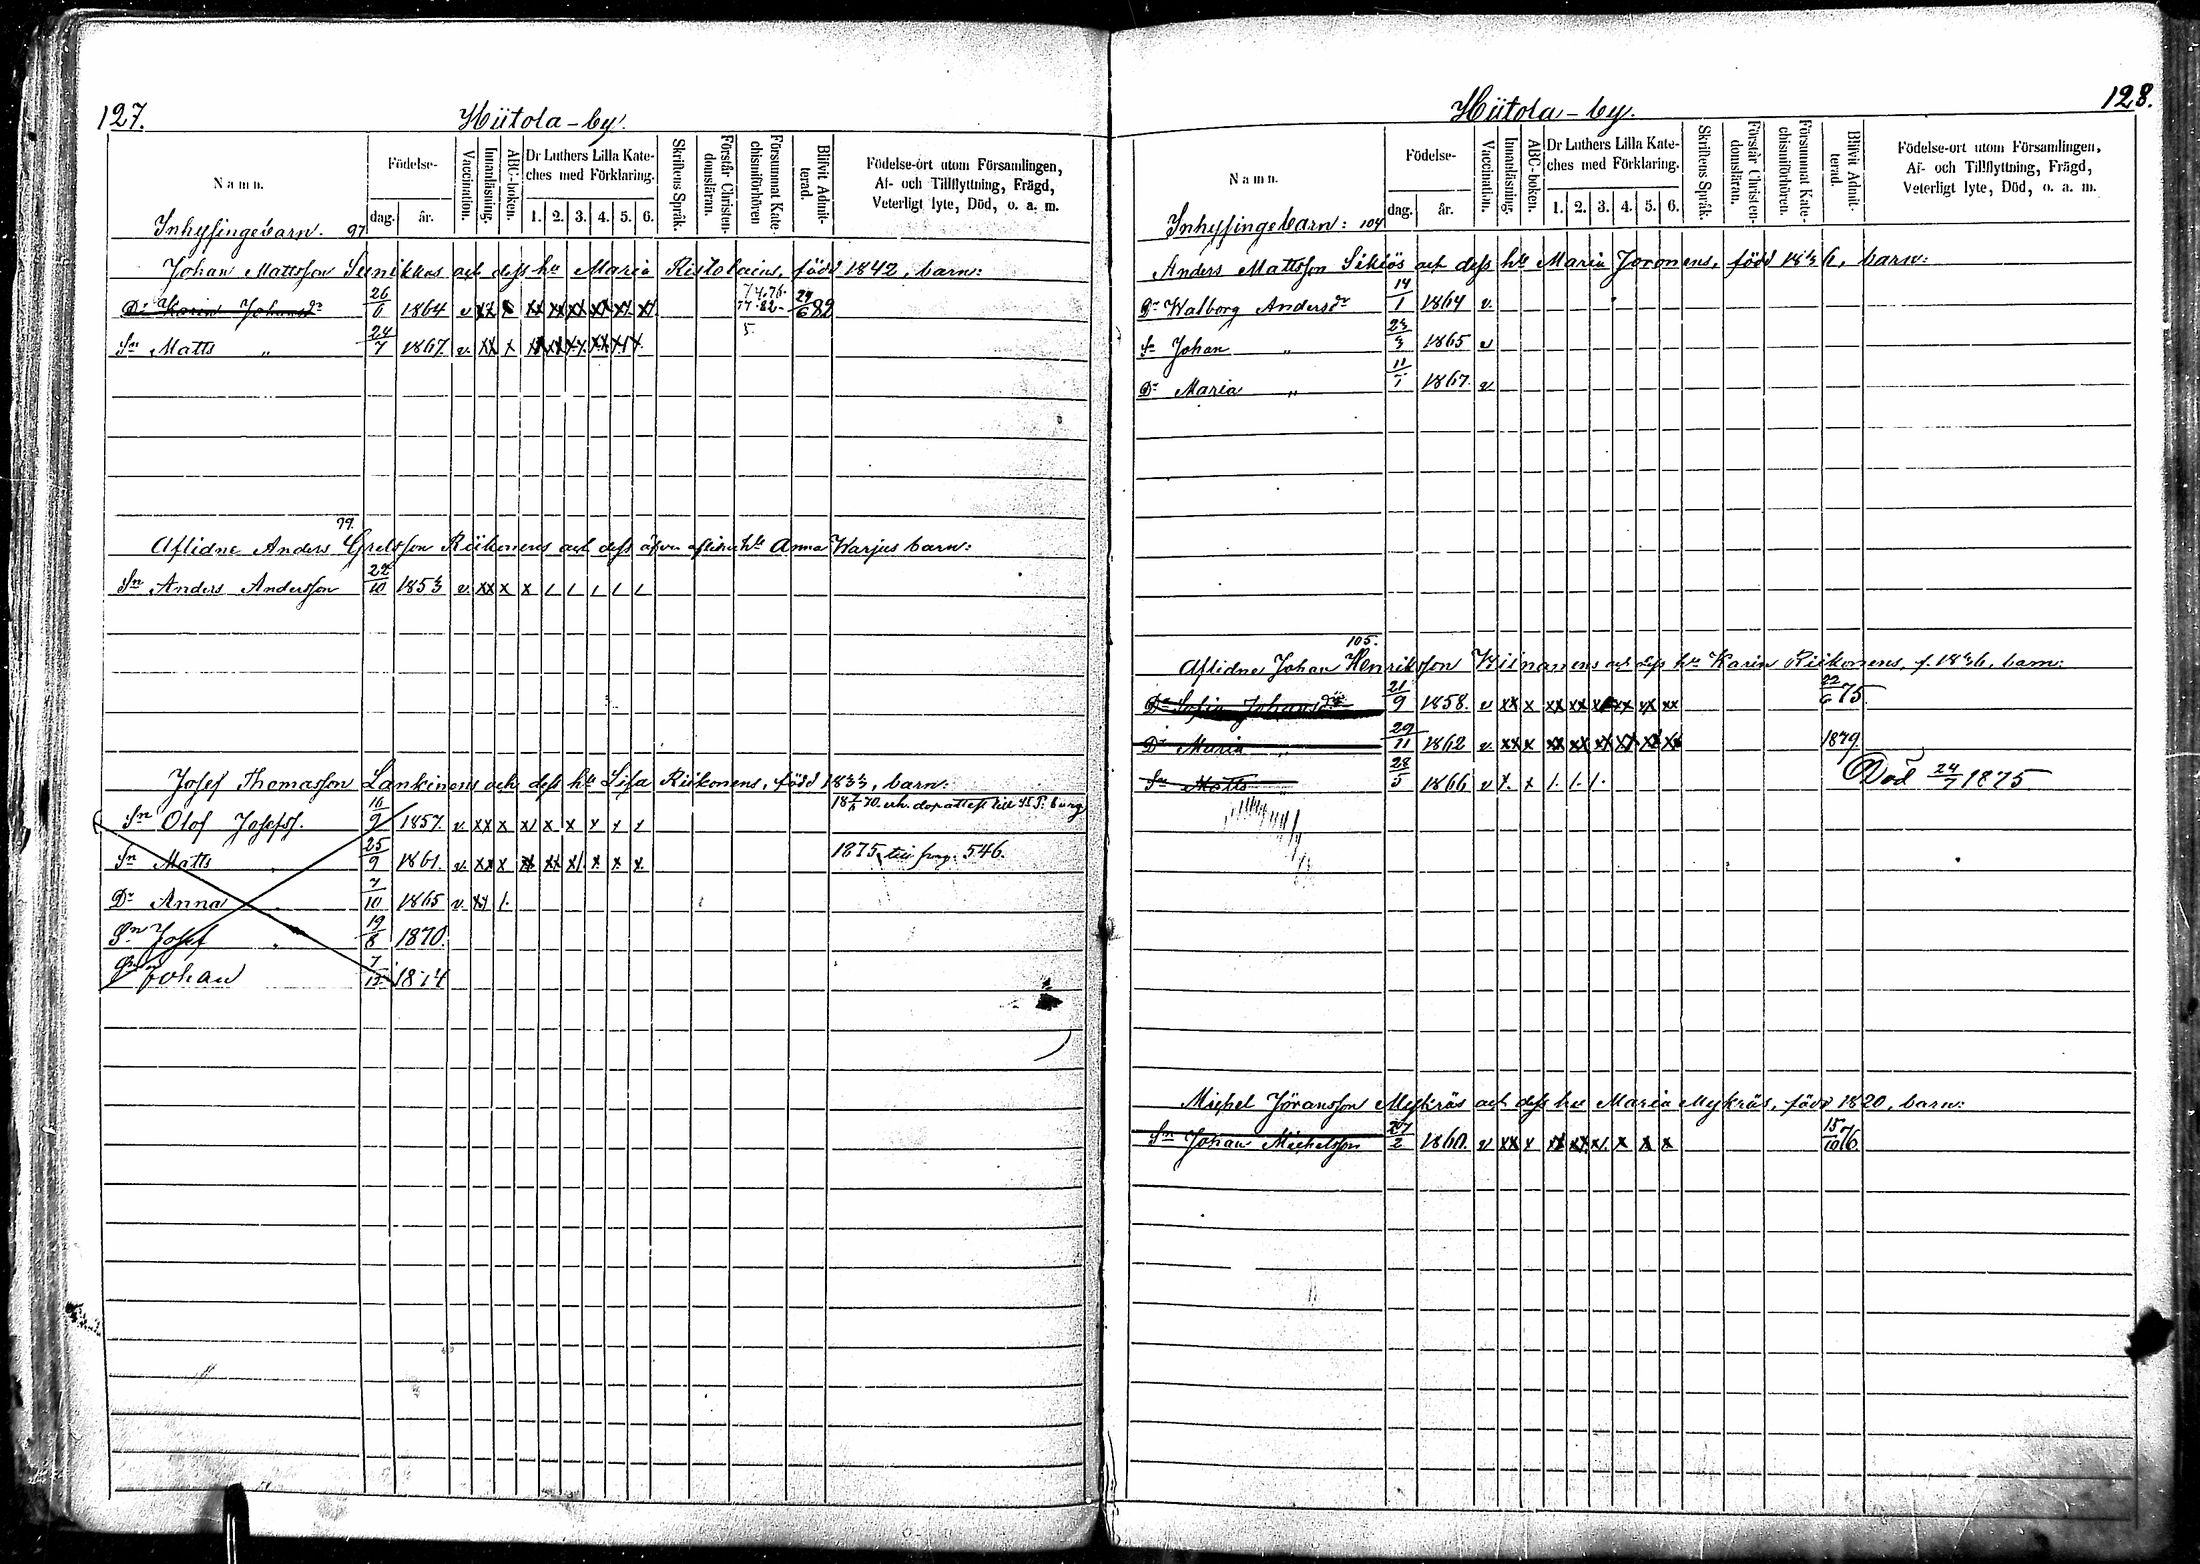 127.
Hiitola-by.
Namn.
Födelse-
dag.
år.
Vaccination.
Innanläsning.
ABC-boken.
Dr Luthers Lilla Kate-
ches med Förklaring.
1. 2. 3. 4. 5. 6.
Skriftens Språk.
Förstår Christen-
domsläran.
Försummat Kate-
chismiförhören
Blifvit Admit-
terad.
Födelse-ort utom Församlingen,
Af- och Tillflyttning, Frägd,
Veterligt lyte, Död, o. a. m.
Inhysingebarn. 97
Johan Mattsson Seenikkas och dess hu Maria Ristolains, född 1842, barn:
Dr Karin Johansdr 26/6 1864 v xx x xx xx xx xx xx xx 74.76. 77.82. 24/6 82
Sn Matts " 24/7 1867. v. xx x xx xx xx xx xx x. 5.
99.
Aflidne Anders Grelsson Riikonens och dess äfven aflidne hu Anna Warjus barn:
Sn Anders Andersson 22/10 1853 v. xx x x / / / / /
Josef Thomasson Lankinens och dess hu Lisa Riikonens, född 1833, barn:
Sn Olof Josefss. 16/9 1857. v. xx x x/ x x x x x 18 7/6 70. erh. dopattest till St P.burg
Sn Matts " 25/9 1861. v. xx x xx xx x/ x x x 1875 till pag. 546.
Dr Anna " 7/10 1865 v. xx /.
Sn Josef " 19/8 1870.
Sn Johan 7/12 1874
128.
Hiitola-by.
Namn.
Födelse-
dag.
år.
Vaccination.
Innanläsning.
ABC-boken.
Dr Luthers Lilla Kate-
ches med Förklaring.
1. 2. 3. 4. 5. 6.
Skriftens Språk.
Förstår Christen-
domsläran.
Försummat Kate-
chismiförhören.
Blifvit Admit-
terad.
Födelse-ort utom Församlingen,
Af- och Tillflyttning, Frägd,
Veterligt lyte, Död, o. a. m.
Inhysingebarn: 104
Anders Mattsson Sikiös och dess hu Maria Joronens, född 1836, barn:
Dr Walborg Andersdr 14/1 1864 v.
Sn Johan " 23/3 1865 v
Dr Maria " 11/7 1867. v
105.
Aflidne Johan Henriksson Wiinanens och dess hu Karin Riikonens, f. 1836, barn:
Dr Sofia Johansdr 21/9 1858. v xx x xx xx xx xx xx xx 22/6 75.
Dr Maria " 29/11 1862 v. xx x xx xx xx xx xx xx 1879.
Sn Matts " 28/5 1866 v x. x /. /. /. Död 24/7 1875.
Michel Jöransson Mykräs och dess hu Maria Mykräs, född 1820, barn:
Sn Johan Michelsson 27/2 1860. v xx x xx xx x/. x x x 15/10 76.